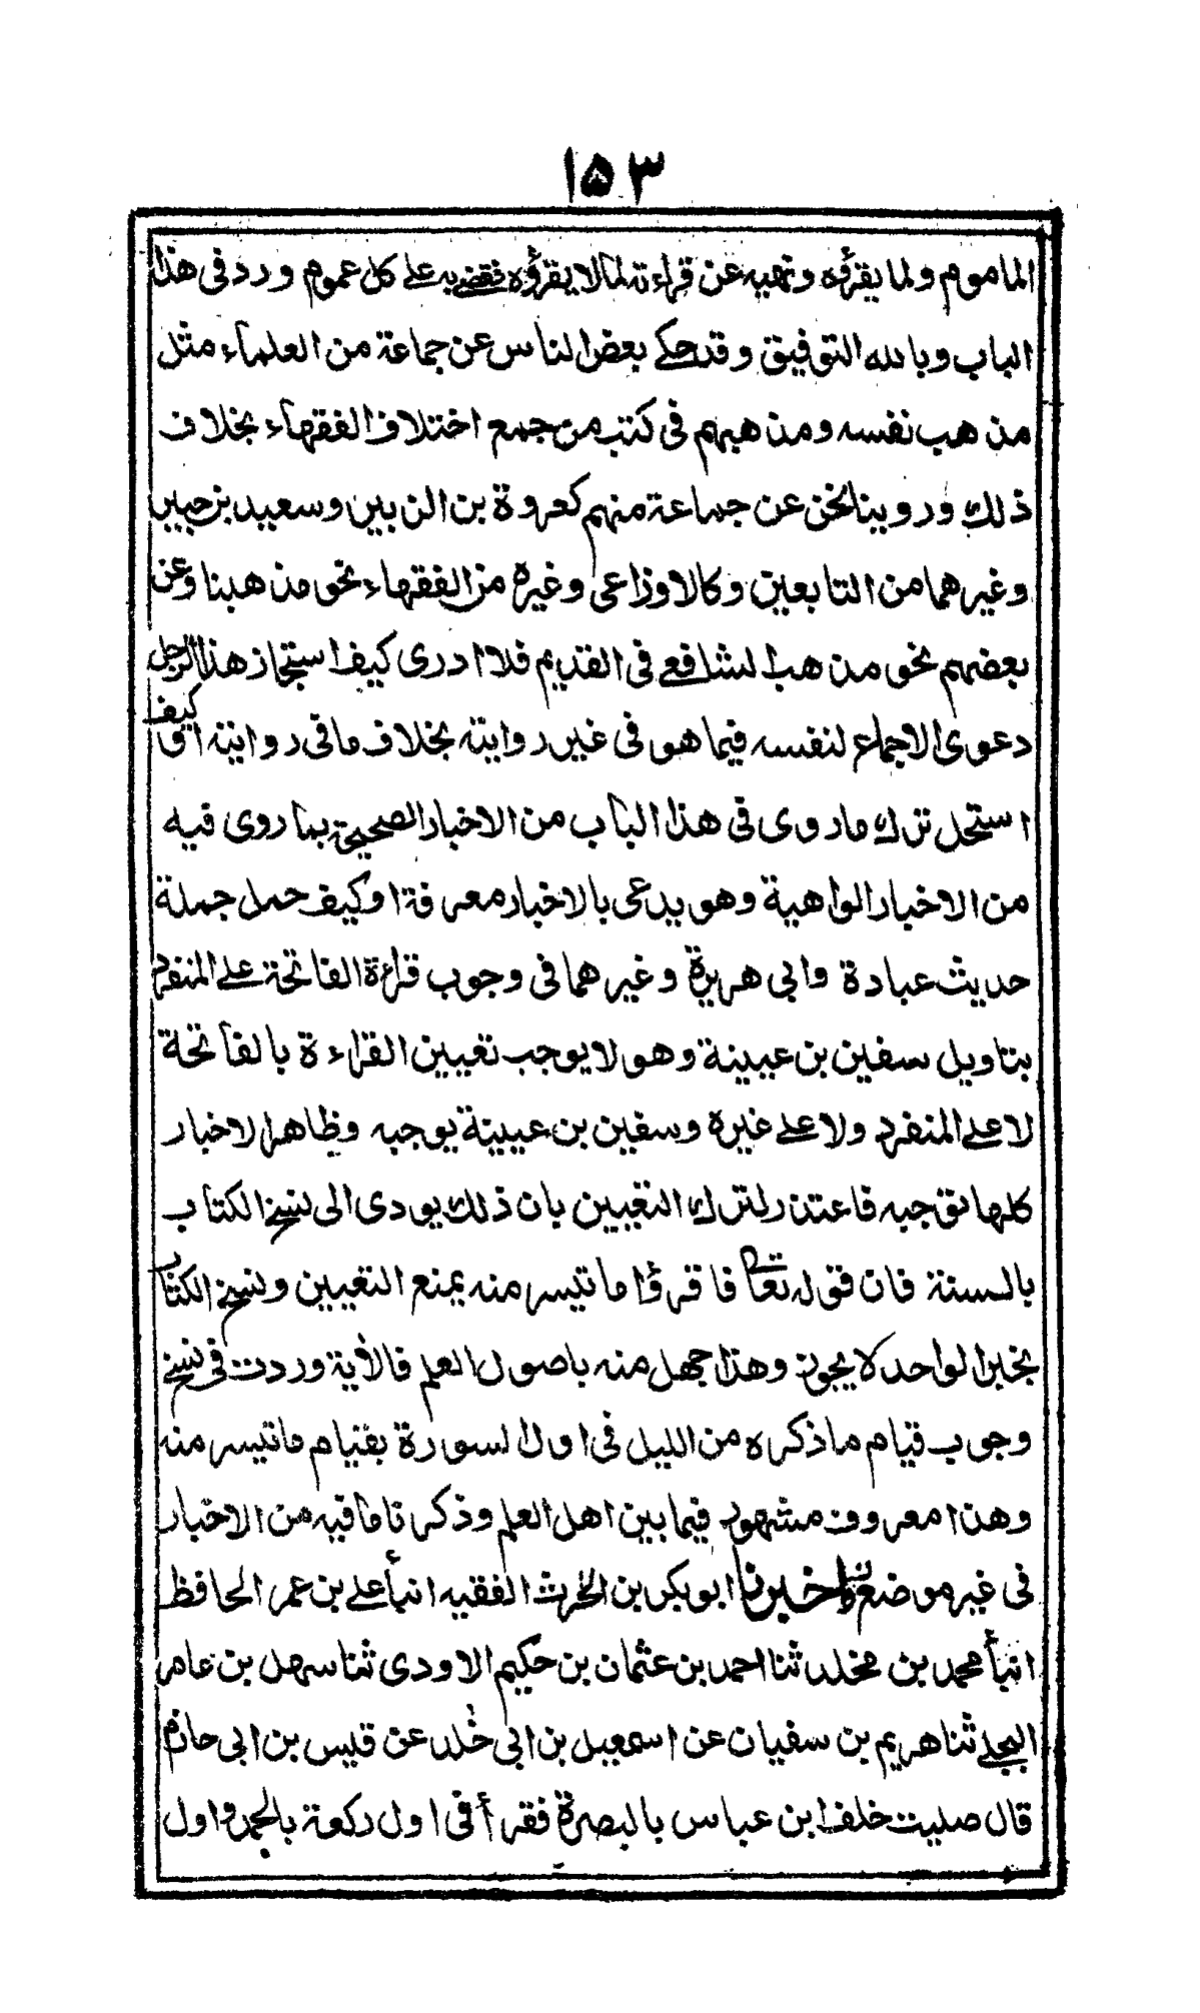 ١٥٣
الماموم ولما يقرؤه ونهيه عن قراءته لما لا يقرؤه فقضى به على كل عموم ورد فى هذا
الباب وبالله التوفيق وقد حكى بعض الناس عن جماعة من العلماء مثل
مذهب نفسه ومذهبهم فى كتب من جمع اختلاف الفقهاء بخلاف
ذلك وروينا نحن عن جماعة منهم كعروة بن الزبير وسعيد بن جبير
وغيرهما من التابعين وكالاوزاعى وغيره من الفقهاء نحو مذهبنا وعن
بعضهم نحو مذهب الشافعى فى القديم فلا ادرى كيف استجاز هذا الرجل
دعوى الاجماع لنفسه فيما هو فى غير روايته بخلاف ما فى روايته او كيف
استحل ترك ما روى فى هذا الباب من الاخبار الصحيحة بما روى فيه
من الاخبار الواهية وهو يدعى بالاخبار معرفة او كيف حمل جملة
حديث عبادة وابى هريرة وغيرهما فى وجوب قراءة الفاتحة على المنفرد
بتاويل سفين بن عيينة وهو لا يوجب تعيين القراءة بالفاتحة
لا على المنفرد ولا على غيره وسفين بن عيينة يوجبه وظاهر الاخبار
كلها توجبه فاعتذر لترك التعيين بان ذلك يودى الى نسخ الكتاب
بالسنة فان قوله تعالى فاقرؤا ما تيسر منه يمنع التعيين ونسخ الكتاب
بخبر الواحد لا يجوز وهذا جهل منه باصول العلم فالأية وردت فى نسخ
وجوب قيام ما ذكره من الليل فى اول السورة بقيام ما تيسر منه
وهذا معروف مشهور فيما بين اهل العلم وذكرنا ما فيه من الاخبار
فى غير موضع اخبرنا ابو بكر بن الحرث الفقيه انبأ على بن عمر الحافظ
انبأ محمد بن مخلد ثنا احمد بن عثمان بن حكيم الاودى ثنا سهل بن عامر
البجلى ثنا هريم بن سفيان عن اسمعيل بن ابى خلد عن قيس بن ابى حازم
قال صليت خلف ابن عباس بالبصرة فقرأ فى اول ركعة بالحمد واول